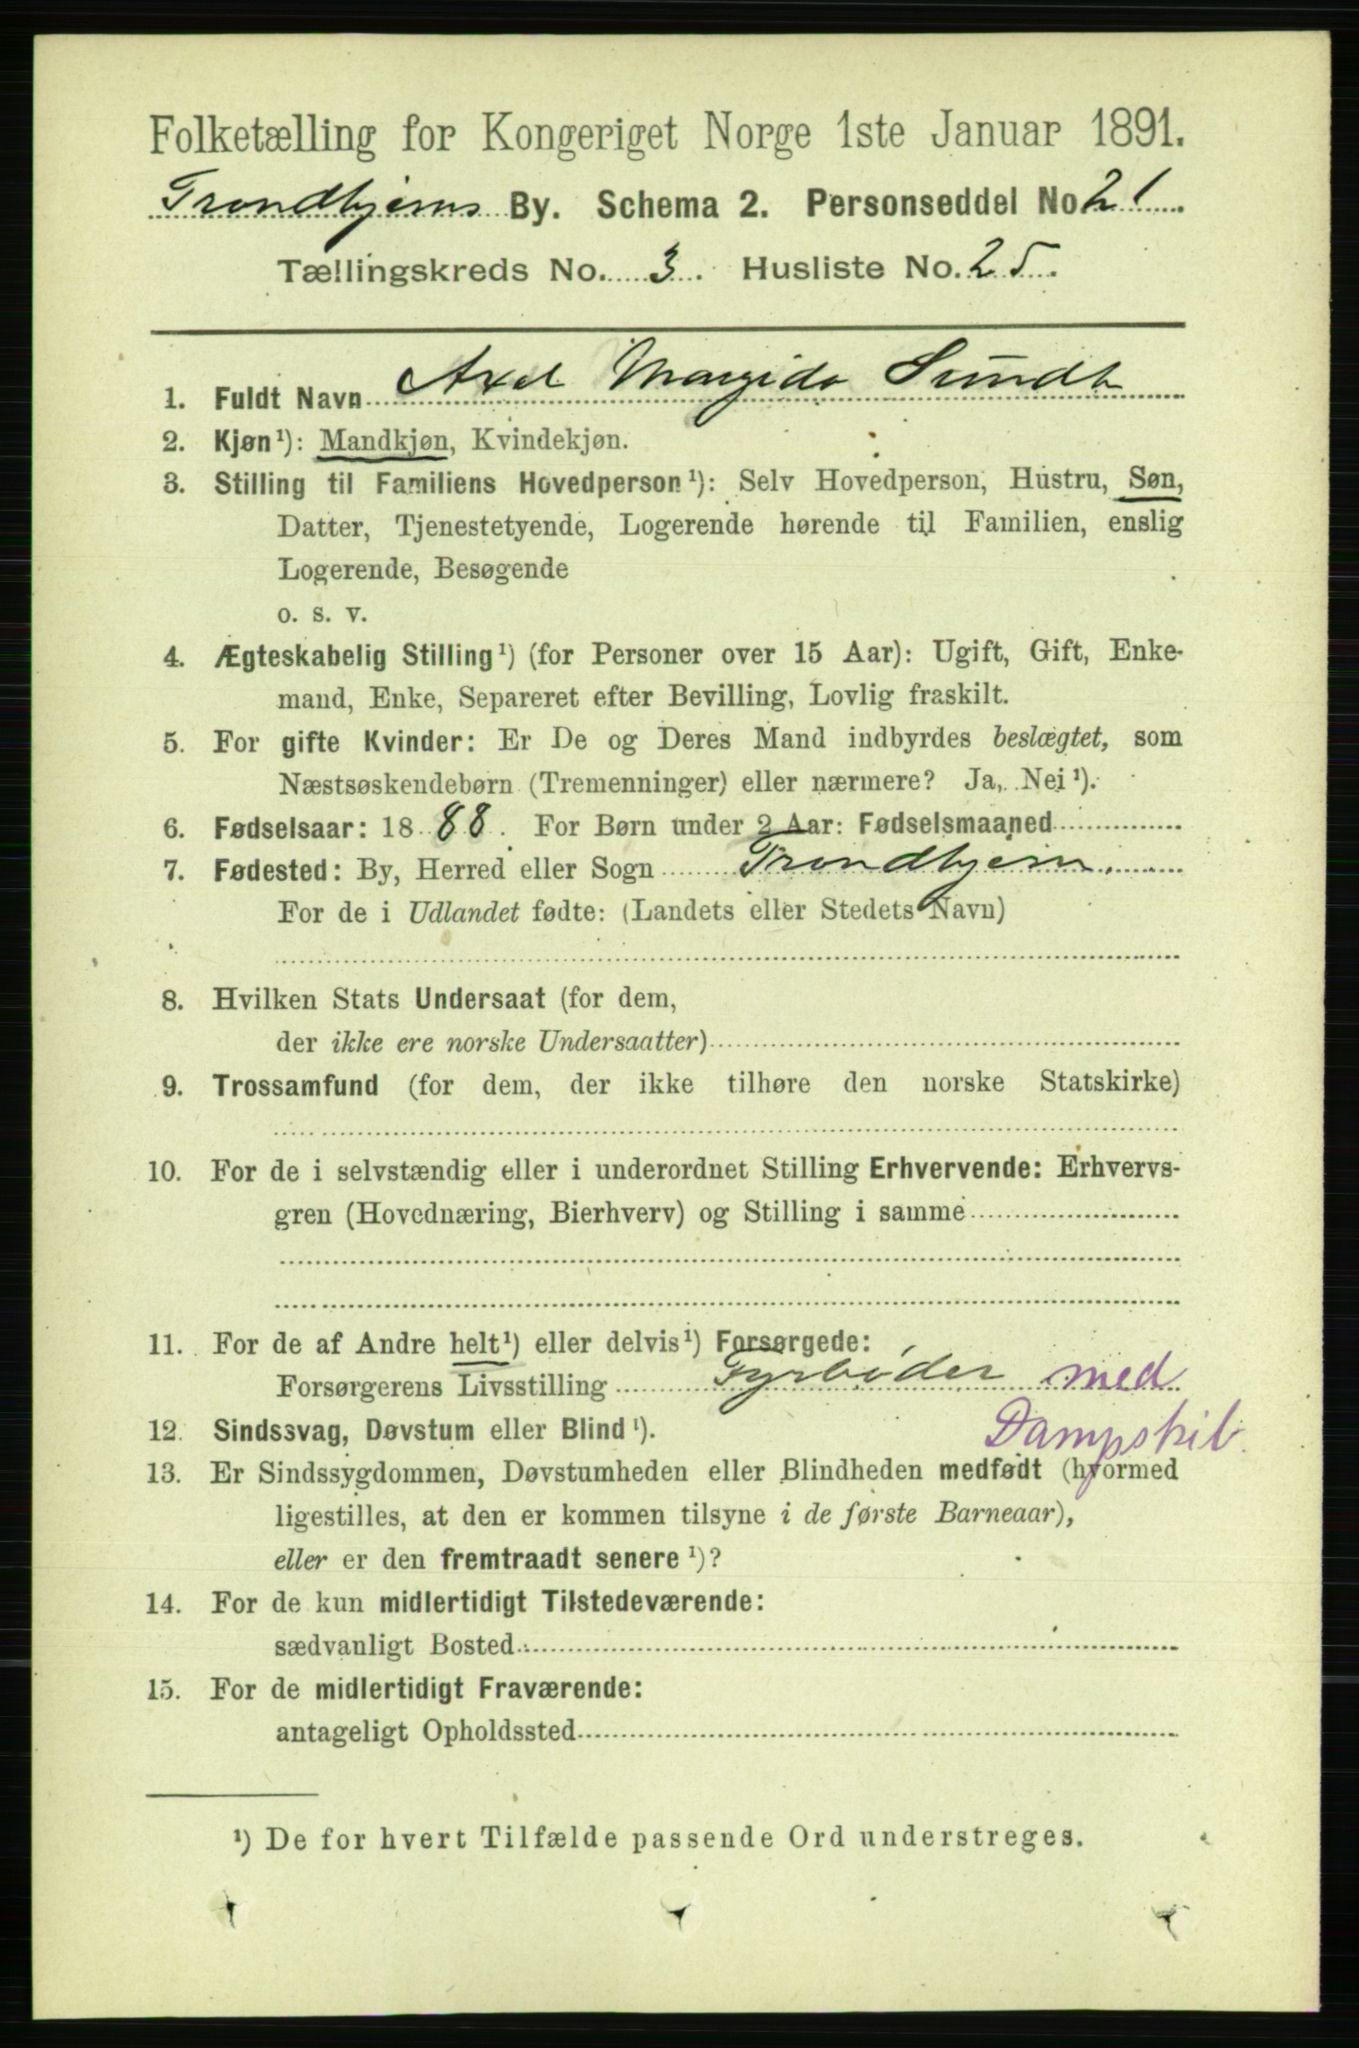 Folketælling for Kongeriget Norge 1ste Januar 1891.
Trondhjems By. Schema 2. Personseddel No 21
Tællingskreds No. 3. Husliste No. 25.
1. Fuldt Navn Axel Margido Sundt
2. Kjøn¹): Mandkjøn, Kvindekjøn.
3. Stilling til Familiens Hovedperson¹): Selv Hovedperson, Hustru, Søn,
Datter, Tjenestetyende, Logerende hørende til Familien, enslig
Logerende, Besøgende
o. s. v.
4. Ægteskabelig Stilling¹) (for Personer over 15 Aar): Ugift, Gift, Enke-
mand, Enke, Separeret efter Bevilling, Lovlig fraskilt.
5. For gifte Kvinder: Er De og Deres Mand indbyrdes beslægtet, som
Næstsøskendebørn (Tremenninger) eller nærmere? Ja, Nei¹).
6. Fødselsaar: 1888. For Børn under 2 Aar: Fødselsmaaned
7. Fødested: By, Herred eller Sogn Trondhjem.
For de i Udlandet fødte: (Landets eller Stedets Navn)
8. Hvilken Stats Undersaat (for dem,
der ikke ere norske Undersaatter)
9. Trossamfund (for dem, der ikke tilhøre den norske Statskirke)
10. For de i selvstændig eller i underordnet Stilling Erhvervende: Erhvervs-
gren (Hovednæring, Bierhverv) og Stilling i samme
11. For de af Andre helt¹) eller delvis¹) Forsørgede:
Forsørgerens Livsstilling Fyrbøder med
Dampskib.
12. Sindssvag, Døvstum eller Blind¹).
13. Er Sindssygdommen, Døvstumheden eller Blindheden medfødt (hvormed
ligestilles, at den er kommen tilsyne i de første Barneaar),
eller er den fremtraadt senere¹)?
14. For de kun midlertidigt Tilstedeværende:
sædvanligt Bosted
15. For de midlertidigt Fraværende:
antageligt Opholdssted
¹) De for hvert Tilfælde passende Ord understreges.